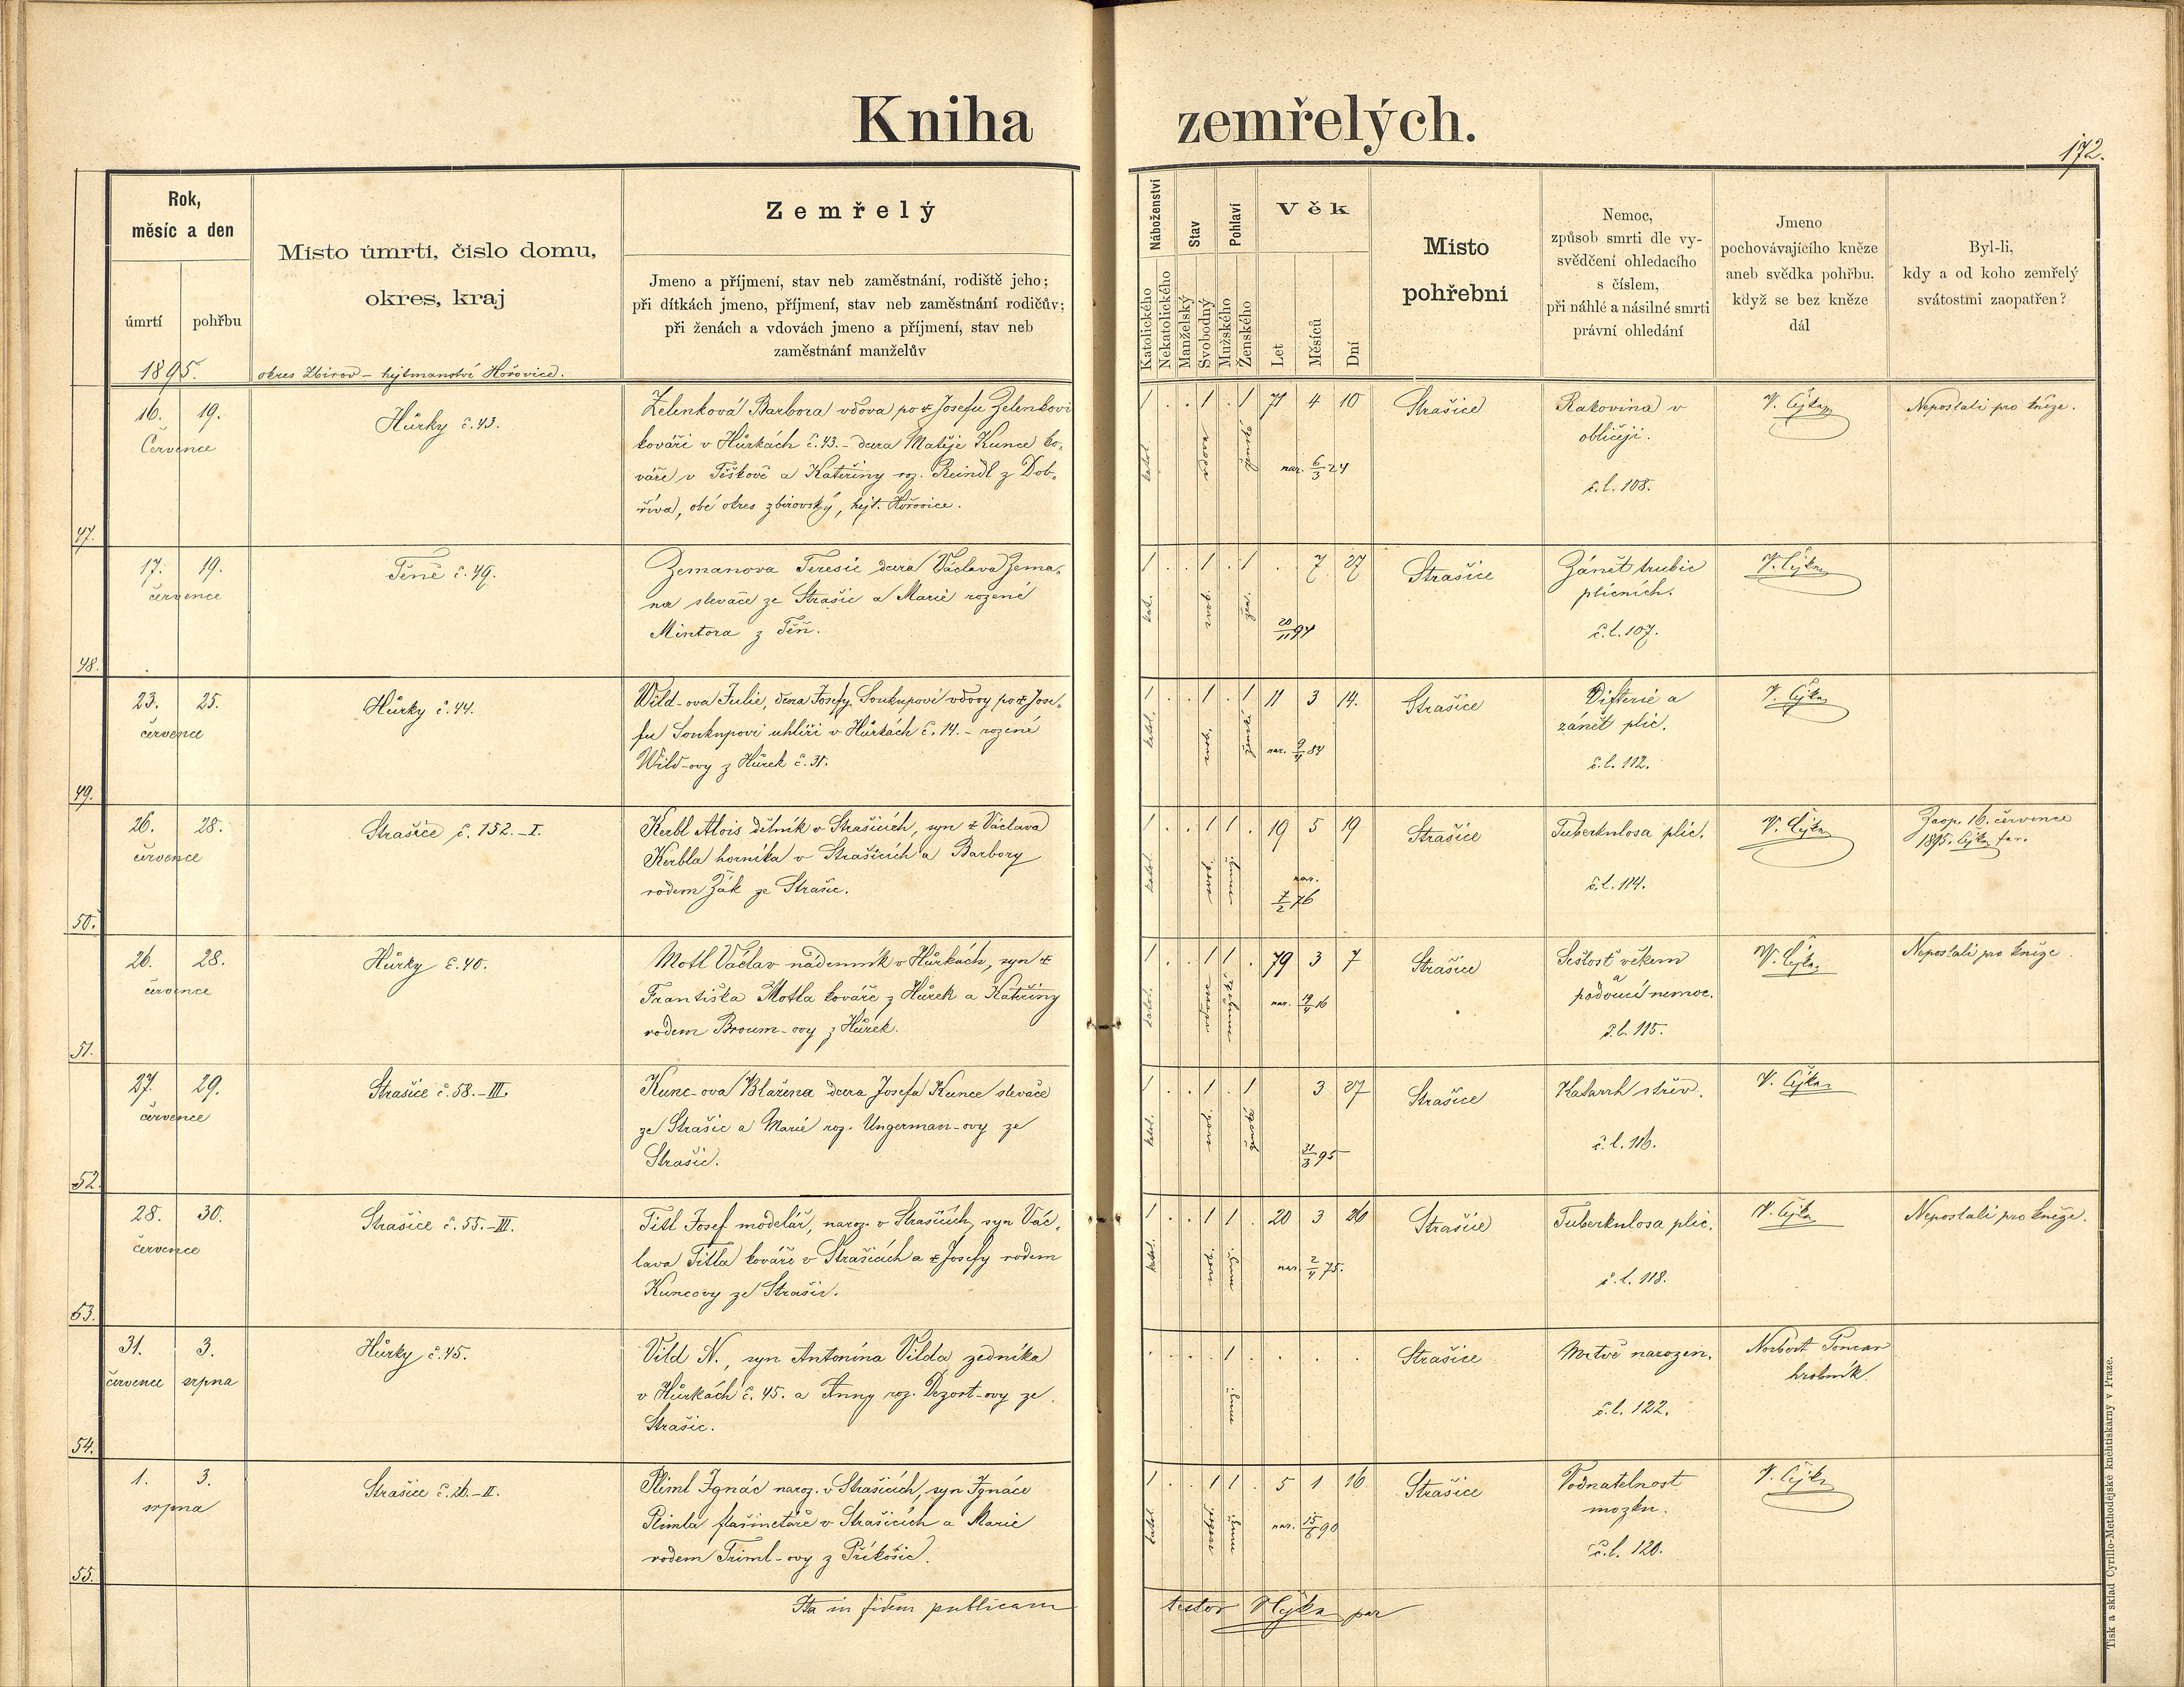 Kniha zemřelých.
172.
Rok,
měsíc a den
úmrtí
pohřbu
1895.
Místo úmrtí, číslo domu,
okres, kraj
okres Zbirov – hejtmanství Hořovice.
Zemřelý
Jmeno a příjmení, stav neb zaměstnání, rodiště jeho;
při dítkách jmeno, příjmení, stav neb zaměstnání rodičův;
při ženách a vdovách jmeno a příjmení, stav neb
zaměstnání manželův
Náboženství
Katolického
Nekatolického
Stav
Manželský
Svobodný
Pohlaví
Mužského
Ženského
Věk
Let
Měsíců
Dní
Místo
pohřební
Nemoc,
způsob smrti dle vy-
svědčení ohledacího
s číslem,
při náhlé a násilné smrti
právní ohledání
Jmeno
pochovávajícího kněze
aneb svědka pohřbu,
když se bez kněze
dál
Byl-li,
kdy a od koho zemřelý
svátostmi zaopatřen?
47.
16. 19.
Července
Hůrky č. 43.
Zelenková Barbora vdova po † Josefu Zelenkovi
kováři v Hůrkách č. 43. – dcera Matěje Kunce ko-
váře v Těškově a Kateřiny roz. Reindl z Dob-
říva, obé okres zbirovský, hejt. Hořovice.
1 . . 1 . 1 71 4 10
katol. vdova ženské
nar. 6/3 24
Strašice
Rakovina v
obličeji.
č. l. 108.
V. Čejka
Neposlali pro kněze.
48.
17. 19.
července
Těně č. 49.
Zemanova Teresie dcera Václava Zema-
na slevače ze Strašic a Marie rozené
Mintora z Těň.
1 . . 1 . 1 . 7 27
kat. žen.
20/11 94
Strašice
Zánět trubic
plicních.
č. l. 107.
V. Čejka
49.
23. 25.
července
Hůrky č. 44.
Wild-ova Julie, dcera Josefy Soukupové vdovy po † Jose-
fu Soukupovi uhlíři v Hůrkách č. 14. – rozené
Wild-ovy z Hůrek č. 31.
1 . . 1 . 1 11 3 14.
katol. ženské
nar. 9/4 84
Strašice
Difterie a
zánět plic.
č. l. 112.
V. Čejka
50.
26. 28.
července
Strašice č. 152. – I.
Kerbl Alois dělník v Strašicích, syn † Václava
Kerbla horníka v Strašicích a Barbory
rodem Žák ze Strašic.
1 . . 1 1 . 19 5 19
katol.
nar.
7/2 76
Strašice
Tuberkulosa plic.
č. l. 114.
V. Čejka
Zaop. 16. července
1895. Čejka far.
51.
26. 28.
července
Hůrky č. 40.
Motl Václav nádenník v Hůrkách, syn †
Františka Motla kováře z Hůrek a Kateřiny
rodem Broum-ovy z Hůrek.
1 . . 1 1 . 79 3 7
katol.
nar. 19/4 16
Strašice
Sešlost věkem
a
padoucí nemoc.
č. l. 115.
V. Čejka
Neposlali pro kněze.
52.
27. 29.
července
Strašice č. 58. – III.
Kunc-ova Blažena dcera Josefa Kunce slevače
ze Strašic a Marie roz. Ungerman-ovy ze
Strašic.
1 . . 1 . 1 3 27
katol. ženské
31/3 95
Strašice
Katarrh střev.
č. l. 116.
V. Čejka
53.
28. 30.
července
Strašice č. 55. – III.
Titl Josef modelář, naroz. v Strašicích, syn Vác-
lava Titla kováře v Strašicích a † Josefy rodem
Kuncovy ze Strašic.
1 . . 1 1 . 20 3 26
katol.
nar. 2/4 75.
Strašice
Tuberkulosa plic.
č. l. 118.
V. Čejka
Neposlali pro kněze.
54.
31. 3.
července srpna
Hůrky č. 45.
Vild N., syn Antonína Vilda zedníka
v Hůrkách č. 45. a Anny roz. Dezort-ovy ze
Strašic.
. . . . 1 . . . .
Strašice
Mrtvě narozen.
č. l. 122.
Norbert
hrobník.
55.
1. 3.
srpna
Strašice č. 26. – II.
Riml Ignác naroz. v Strašicích, syn Ignáce
Rimla flašinetáře v Strašicích a Marie
rodem Triml-ovy z Příkosic.
1 . . 1 1 . 5 1 16
katol.
nar. 15/6 90
Strašice
Vodnatelnost
mozku.
č. l. 120.
V. Čejka
Ita in fidem publicam testor VČejka par
Tisk a sklad Cyrillo-Methodějské knihtiskárny v Praze.